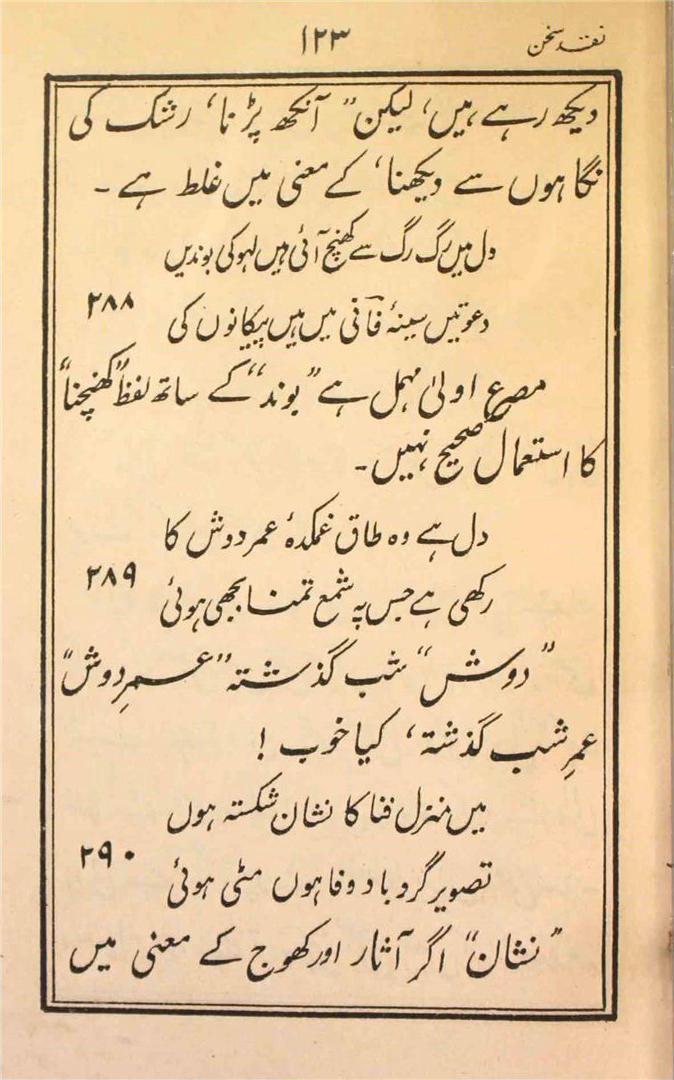 نقد سخن
۱۲۳
دیکھ رہے ہیں، لیکن " آنکھ پڑنا، رشک کی
نگاہوں سے دیکھنا، کے معنی میں غلط ہے ۔
دل میں رگ رگ سے کھنچ آئی ہیں لہو کی بوندیں
دعوتیں سینۂ فانؔی میں ہیں پیکانوں کی ۲۸۸
مصرع اولیٰ مہمل ہے " بوند" کے ساتھ لفظ "کھنچنا"
کا استعمال صحیح نہیں۔
دل ہے وہ طاق غمکدۂ عمر دوش کا
رکھی ہے جس پہ شمع تمنا بجھی ہوئی ۲۸۹
"دوش" شب گذشتہ "عمرِ دوش"
عمرِ شب گذشتہ، کیا خوب !
میں منزل فنا کا نشان شکستہ ہوں
تصویر گرد باد وفا ہوں مٹی ہوئی ۲۹۰
"نشان" اگر آثار اور کھوج کے معنی میں